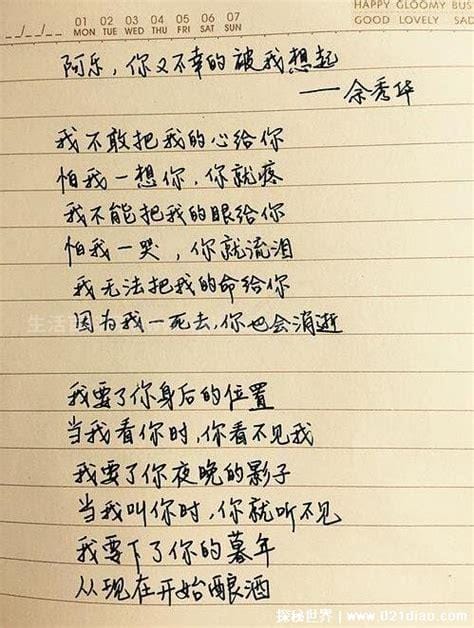 01 02 03 04 05 06 07
MON TUE WED THU FRI SAT SUN
HAPPY GLOOMY BUS
GOOD LOVELY SAD
阿乐，你又不幸的被我想起
——余秀华
我不敢把我的心给你
怕我一想你，你就疼
我不能把我的眼给你
怕我一哭，你就流泪
我无法把我的命给你
因为我一死去，你也会消逝
我要了你身后的位置
当我看你时，你看不见我
我要了你夜晚的影子
当我叫你时，你就听不见
我要下了你的暮年
从现在开始酿酒
探秘世界 / www.021diao.com